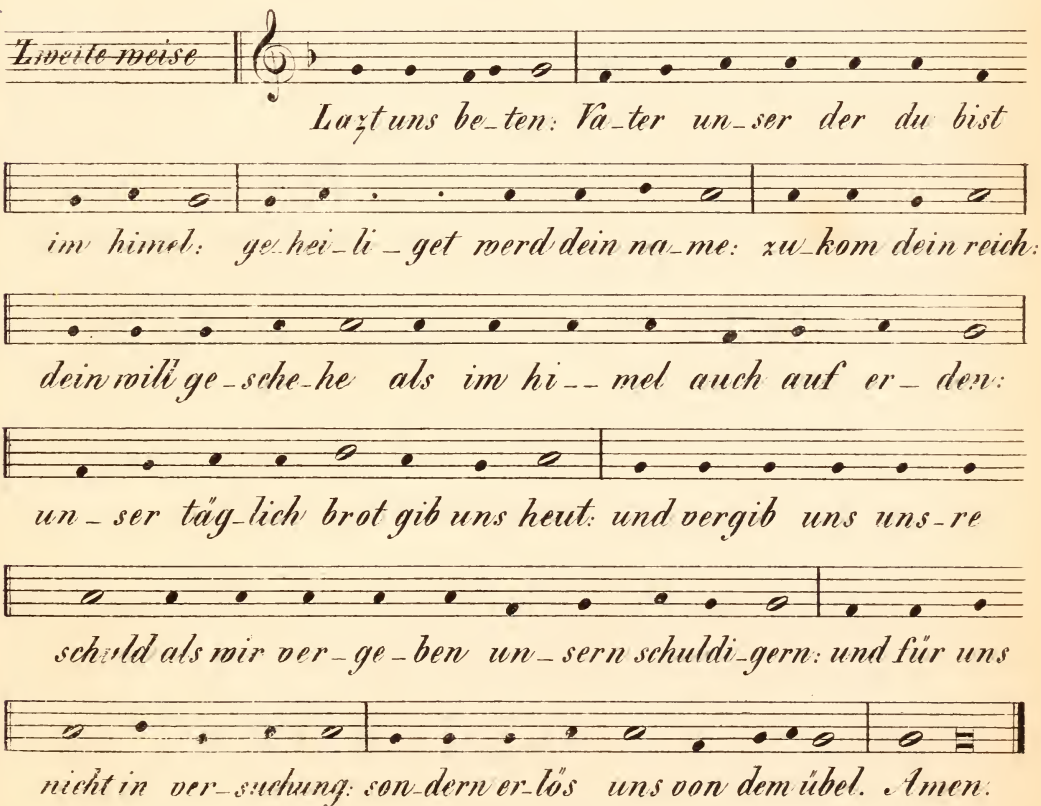 Zweite weise
Lazt uns be-ten: Va-ter un-ser der du bist
im himel: ge-hei-li-get werd dein na-me: zu-kom dein reich:
dein will ge-sche-he als im hi--mel auch auf er-den:
un-ser täg-lich brot gib uns heut: und vergib uns uns-re
schuld als wir ver-ge-ben un-sern schuldi-gern: und für uns
nicht in ver-suchung: son-dern er-lös uns von dem übel. Amen.